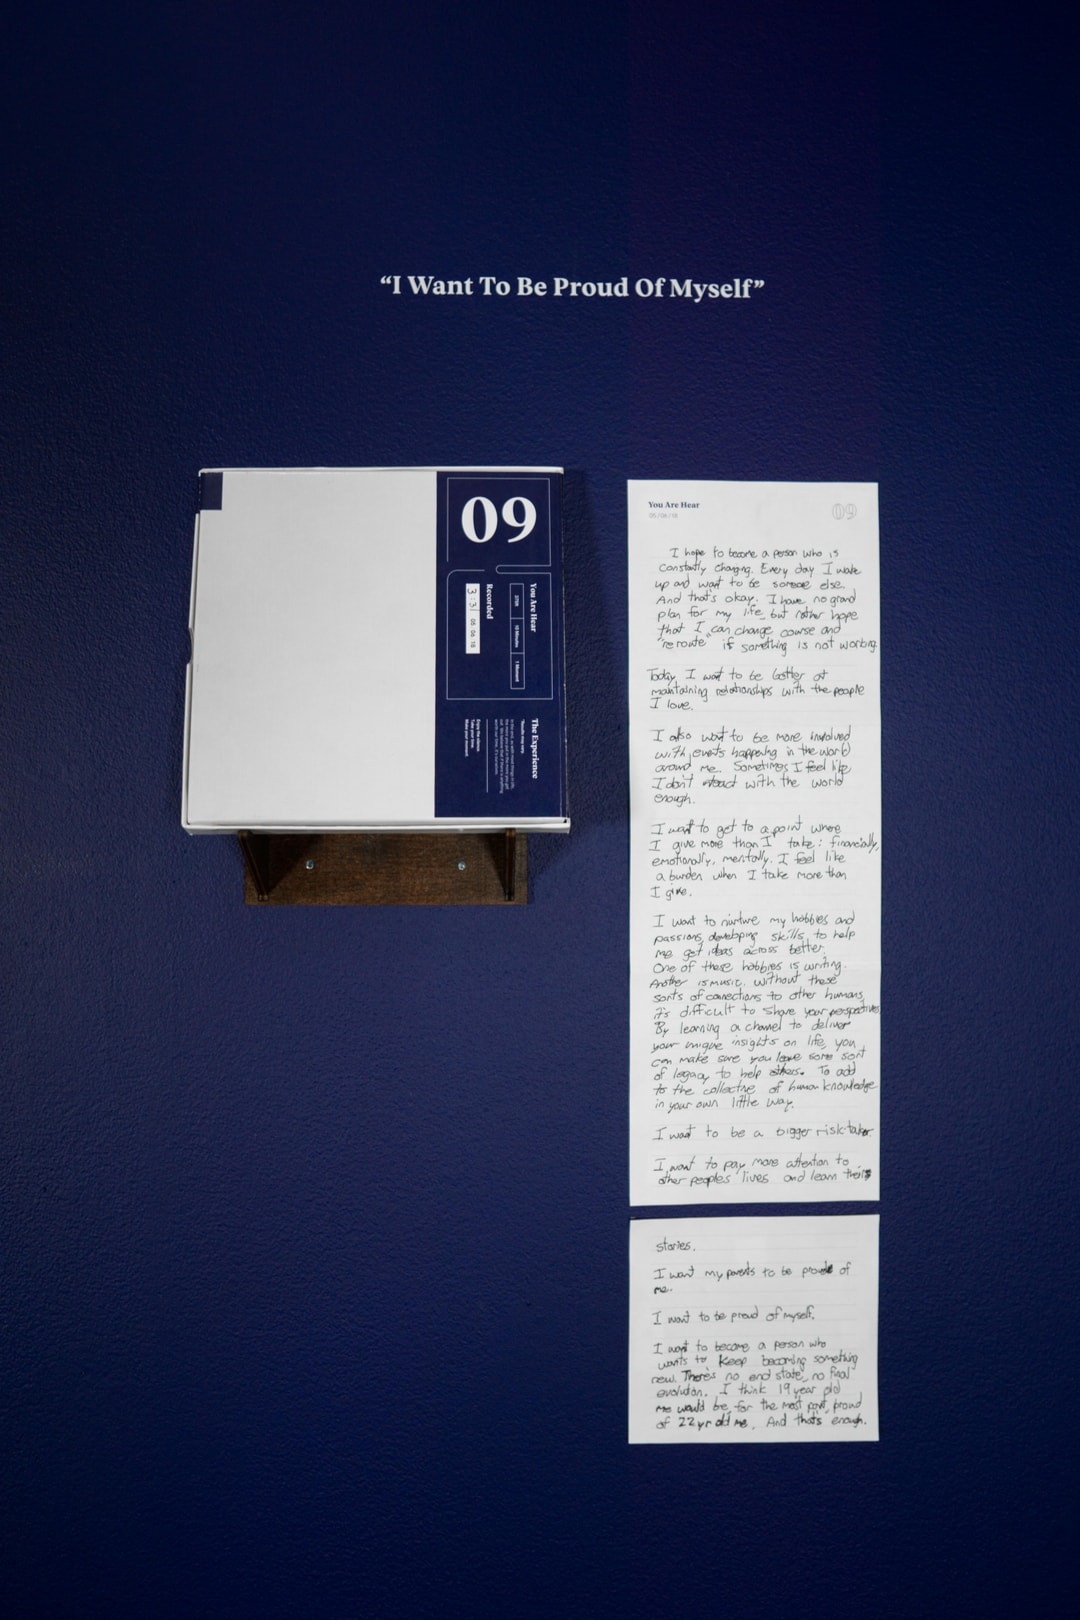 “I Want To Be Proud Of Myself”
09
You Are Hear
1 Moment
Recorded
3:31 05 06 18
The Experience
*Results may vary.
Enjoy the silence.
Take your time.
Make your moment.
You Are Hear
05/06/18
09
I hope to become a person who is
constantly changing. Every day I wake
up and want to be someone else.
And that's okay. I have no grand
plan for my life but rather hope
that I can change course and
"reroute" if something is not working.
Today, I want to be better at
maintaining relationships with the people
I love.
I also want to be more involved
with events happening in the world
around me. Sometimes I feel like
I don't interact with the world
enough.
I want to get to a point where
I give more than I take: financially,
emotionally, mentally. I feel like
a burden when I take more than
I give.
I want to nurture my hobbies and
passions, developing skills to help
me get ideas across better.
One of these hobbies is writing.
Another is music. Without these
sorts of connections to other humans,
it's difficult to share your perspectives.
By learning a channel to deliver
your unique insights on life, you
can make sure you leave some sort
of legacy to help others. To add
to the collective of human knowledge
in your own little way.
I want to be a bigger risk-taker.
I want to pay more attention to
other peoples lives and learn their
stories.
I want my parents to be proud of
me.
I want to be proud of myself.
I want to become a person who
wants to keep becoming something
new. There's no end state, no final
evolution. I think 19 year old
me would be, for the most part, proud
of 22 yr old me. And that's enough.